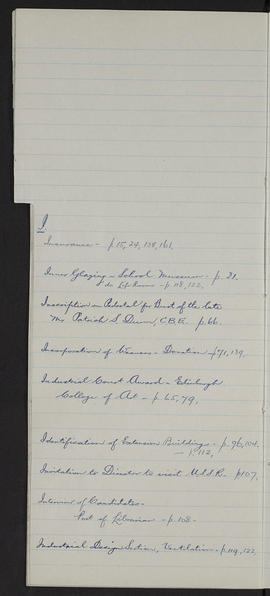 I.
Insurance - p.15, 24, 138, 161.
Inner Glazing - School Museum - p. 31.
" do Life Rooms - p. 118, 122.
Inscription on Pedestal for Bust of the late
Mr Patrick S. Dunn, C.B.E. p.66.
Incorporation of - Donation - p.71, 139.
Industrial Court Award - Edinburgh
College of Art - p.65, 79.
Identification of Extension Buildings - p.96, 104.
- p.112,
Invitation to Director to visit U.S.S.R. p107.
Interview of Candidates -
Post of Librarian - p.108.
Industrial Design Section, Ventilation - p.119, 122.